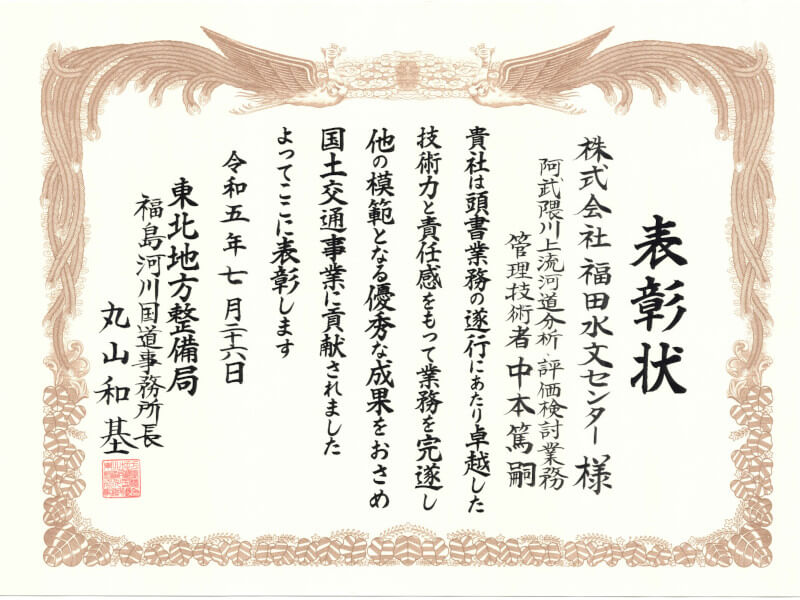 表彰状
株式会社 福田水文センター 様
阿武隈川上流河道分析・評価検討業務
管理技術者 中本篤嗣
貴社は頭書業務の遂行にあたり卓越した
技術力と責任感をもって業務を完遂し
他の模範となる優秀な成果をおさめ
国土交通事業に貢献されました
よってここに表彰します
令和五年七月二十六日
東北地方整備局
福島河川国道事務所長
丸山和基